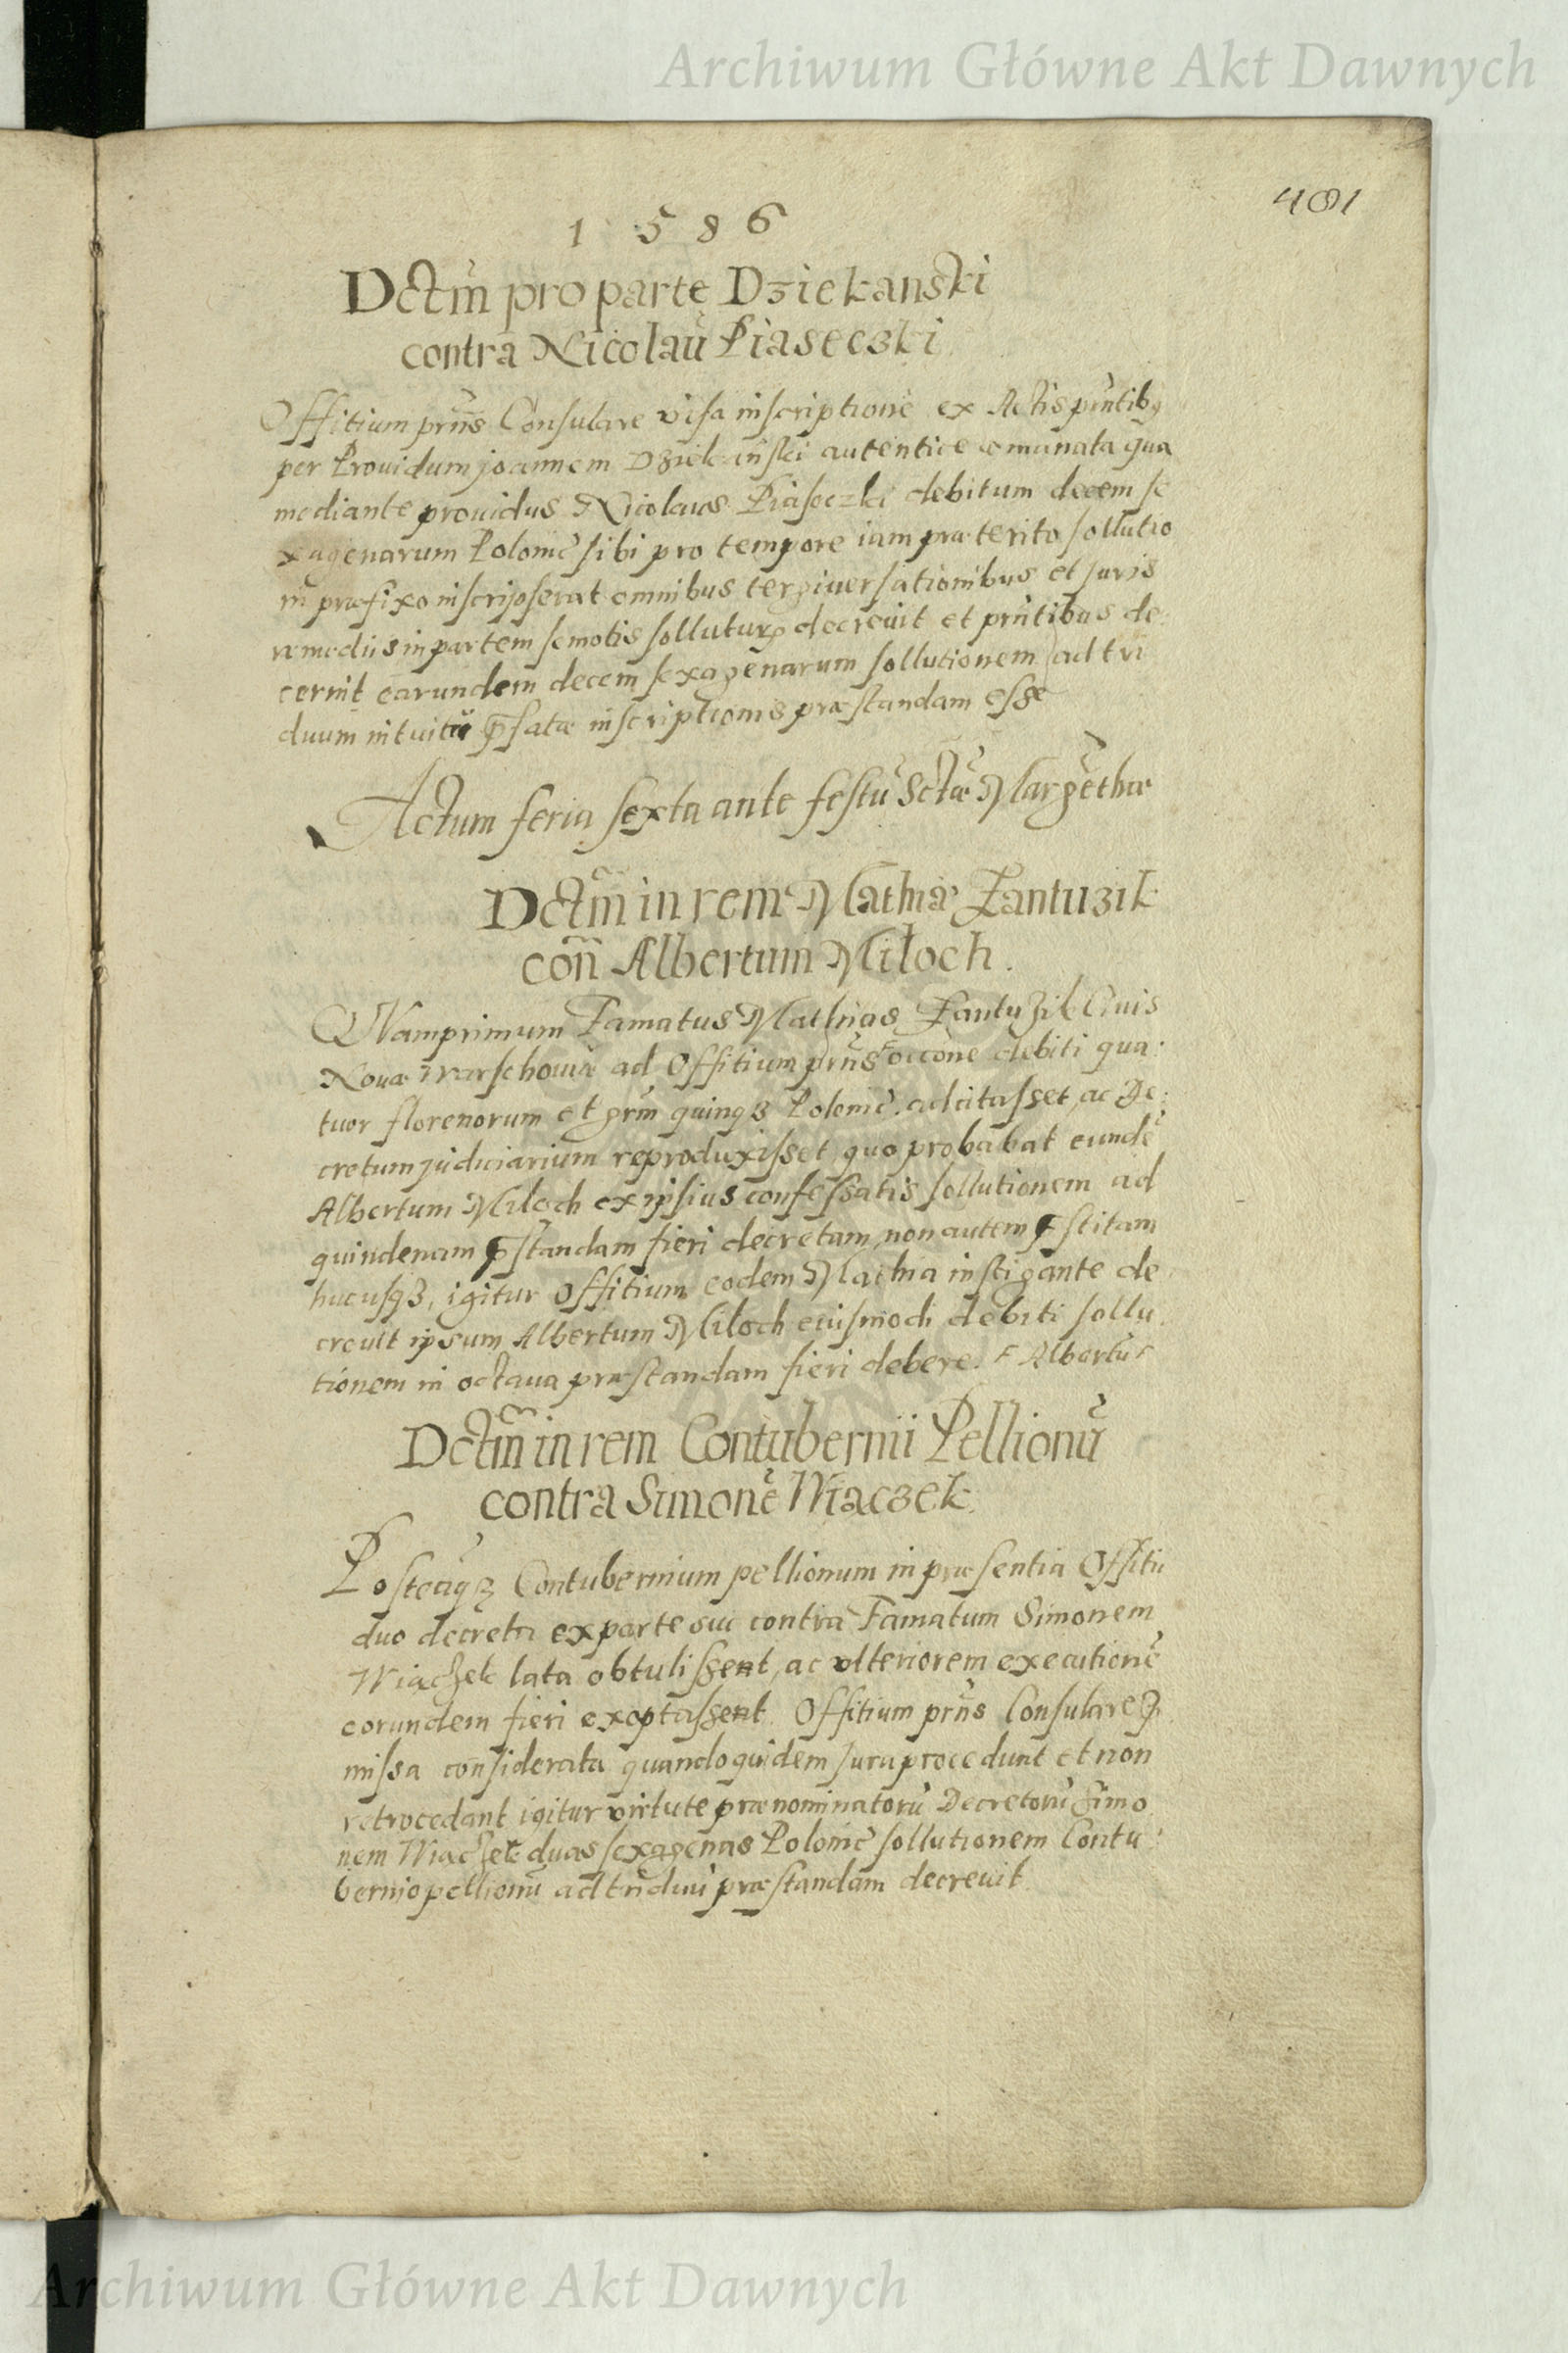 Archiwum Główne Akt Dawnych
481
1586
Dctm̃ pro parte Dziekanski
contra Nicolaũ Piaseczki
Offitium prñs Consulare visa inscriptionẽ ex Actis prñtibꝫ
per Prouidum Joannem Dziekanski autentice emanata qua
mediante prouidus Nicolaus Piaseczki debitum decem se
xagenarum Polonic̃ sibi pro tempore iam præterito sollutio
ni præfixo inscripserat omnibus tergiuersationibus et Juris
remediis in partem semotis sollutur decreuit et prñtibus de:
cernit earundem decem sexagenarum sollutionem ad tri
duum intuitu p̃fatæ inscriptionis præstandam esse
Actum feria sexta ante festũ Sctæ Margẽthæ
Dctm̃ in rem Mathiæ Zantuzik
con̄ Albertum Miloch.
QVamprimum Famatus Mathias Zantuzik Ciuis
Nouæ Warschouiæ ad Offitium prñs ⸀ occõne debiti qua:
tuor florenorum et grm̃ quinqꝫ Polonic̃. adcitasset, ac De:
cretum judiciarium reproduxisset, quo probabat eundẽ
Albertum Miloch ex ipsius confessatis sollutionem ad
quindenam p̃standam fieri decretam, non autem p̃stitam
hucusqꝫ, igitur Offitium eodem Mathia instigante de
creuit ipsum Albertum Miloch eiusmodi debiti sollu
tionem in octaua præstandam fieri debere. ⸀ Albertũ
Dctm̃ in rem Contubernii Pellionũ
contra Simonẽ Wiaczek
Posteaqꝫ Contubernium pellionum in præsentia Offitii
duo decreta ex parte sui contra Famatum Simonem
Wiaczek lata obtulissent, ac vlteriorem executionẽ
eorundem fieri exoptassent. Offitium prñs Consulare p̃
missa considerata quandoquidem Jura procedunt et non
retrocedant igitur virtute prænominatorũ Decretorũ Simo
nem Wiaczek duas sexagenas Polonic̃ sollutionem Contu:
bernio pellionũ ad triduũ præstandam decreuit
Archiwum Główne Akt Dawnych